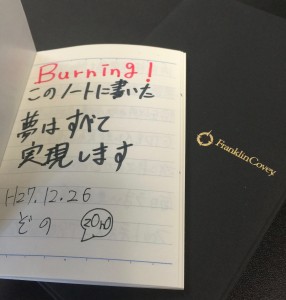 Burning!
このノートに書いた
夢はすべて
実現します
H27.12.26
ぞの
ZONO
FranklinCovey